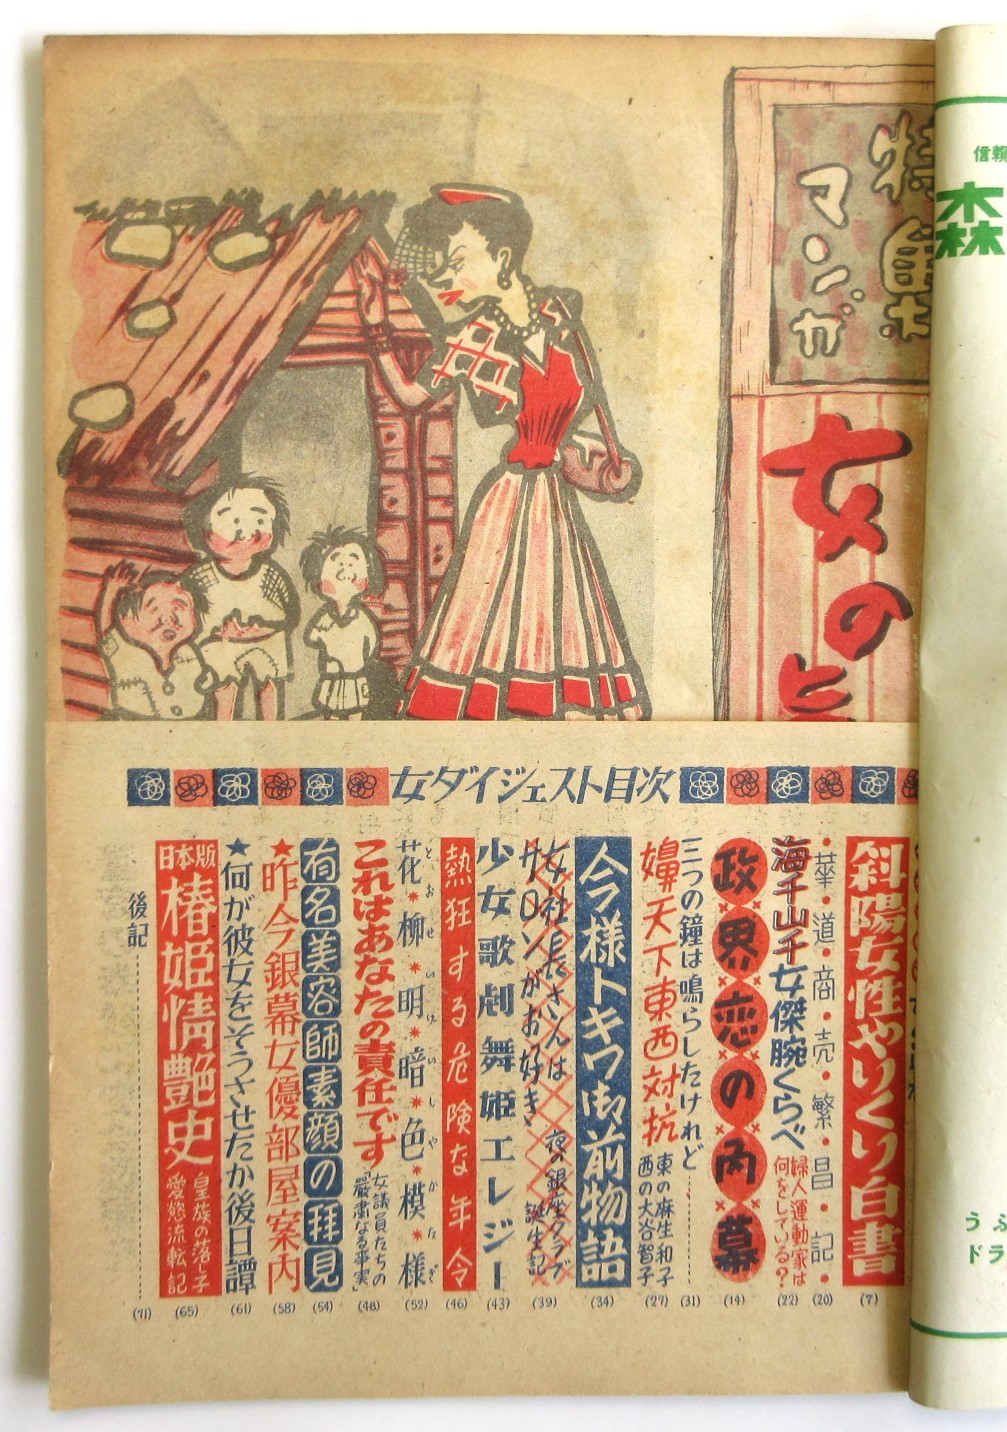 信頼
森
特集
マンガ
女の
うぷ
ドラ
女ダイジェスト目次
斜陽女性やりくり白書
(7)
・華・道・商・売・繁・昌・記・
(20)
海千山千女傑腕くらべ
婦人運動家は
何をしている?
(22)
政界恋の内幕
(14)
三つの鐘は鳴らしたけれど
(31)
嬶天下東西対抗
東の麻生和子
西の大谷智子
(27)
今様トキワ御前物語
(34)
女社長さんは
サロンがお好き
夜の銀座クラブ
誕生記
(39)
少女歌劇舞姫エレジー
(43)
熱狂する危険な年令
(46)
花*柳*明*暗*色*模*様
(52)
これはあなたの責任です
女議員たちの
「厳粛なる事実」
(48)
有名美容師素顔の拝見
(54)
★昨今銀幕女優部屋案内
(58)
★何が彼女をそうさせたか後日譚
(61)
日本版
椿姫情艶史
皇族の落し子
愛慾流転記
(65)
後記
(71)